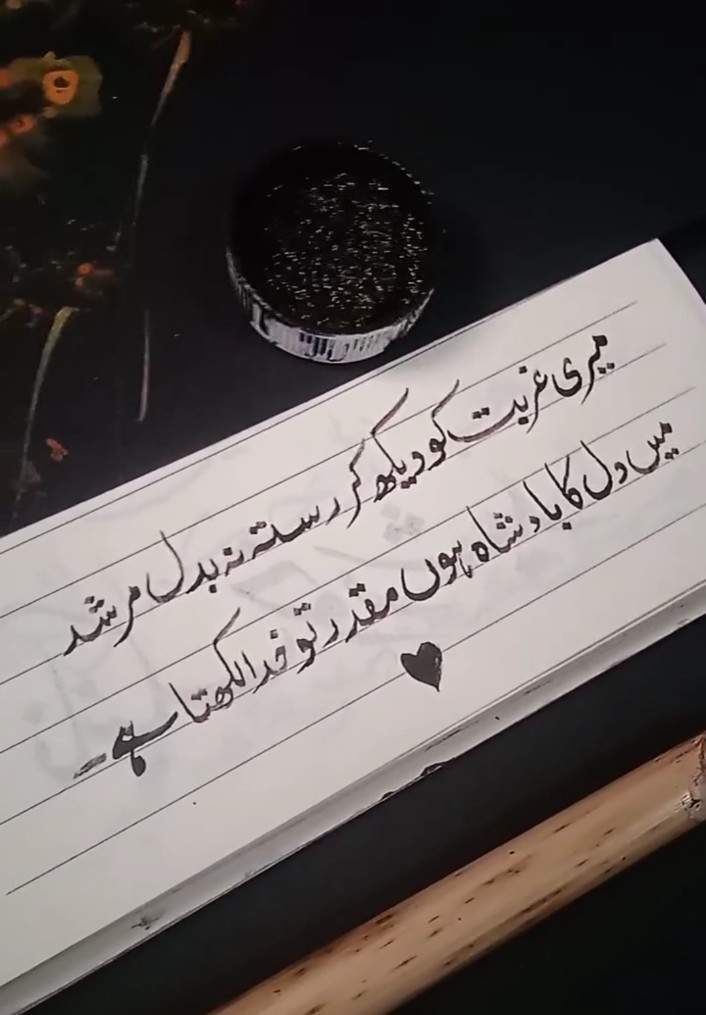 میری غربت کو دیکھ کر رستہ نہ بدل مرشد
میں دل کا بادشاہ ہوں مقدر تو خدا لکھتا ہے۔